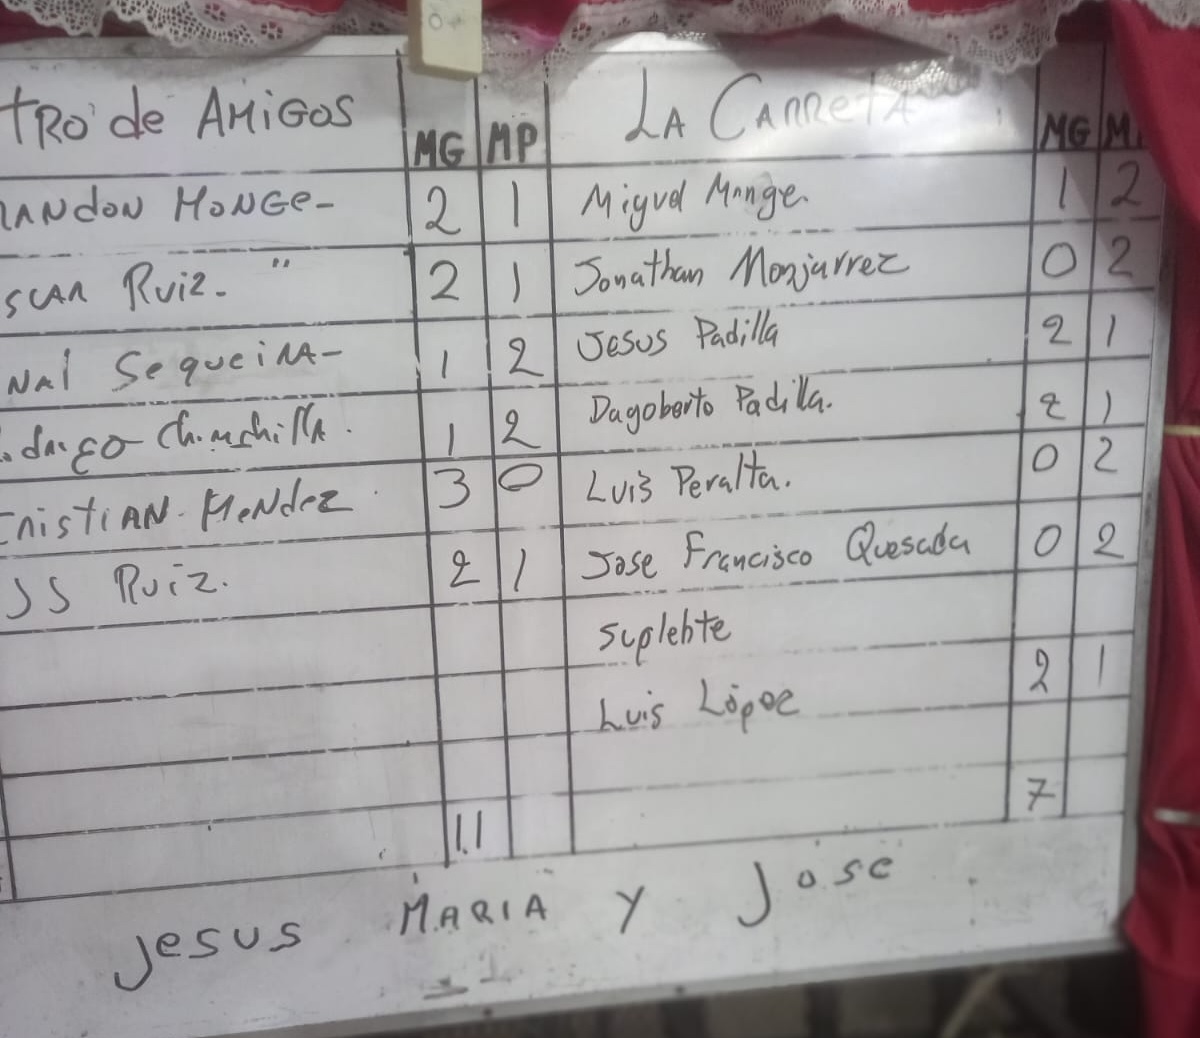 TRO de AMIGOS MG MP LA CARRETA MG M
RANdON MONGE- 2 1 Miguel Monge. 1 2
SCAR Ruiz. " 2 1 Jonathan Monjarrez 0 2
NAl SequeiRA- 1 2 Jesus Padilla 2 1
Chinchilla. 1 2 Dagoberto Padilla. 2 1
CristiAN. MeNdez 3 0 Luis Peralta. 0 2
SS Ruiz. 2 1 Jose Francisco Quesada 0 2
suplente
Luis López 2 1
11 7
Jesus MARIA Y Jose